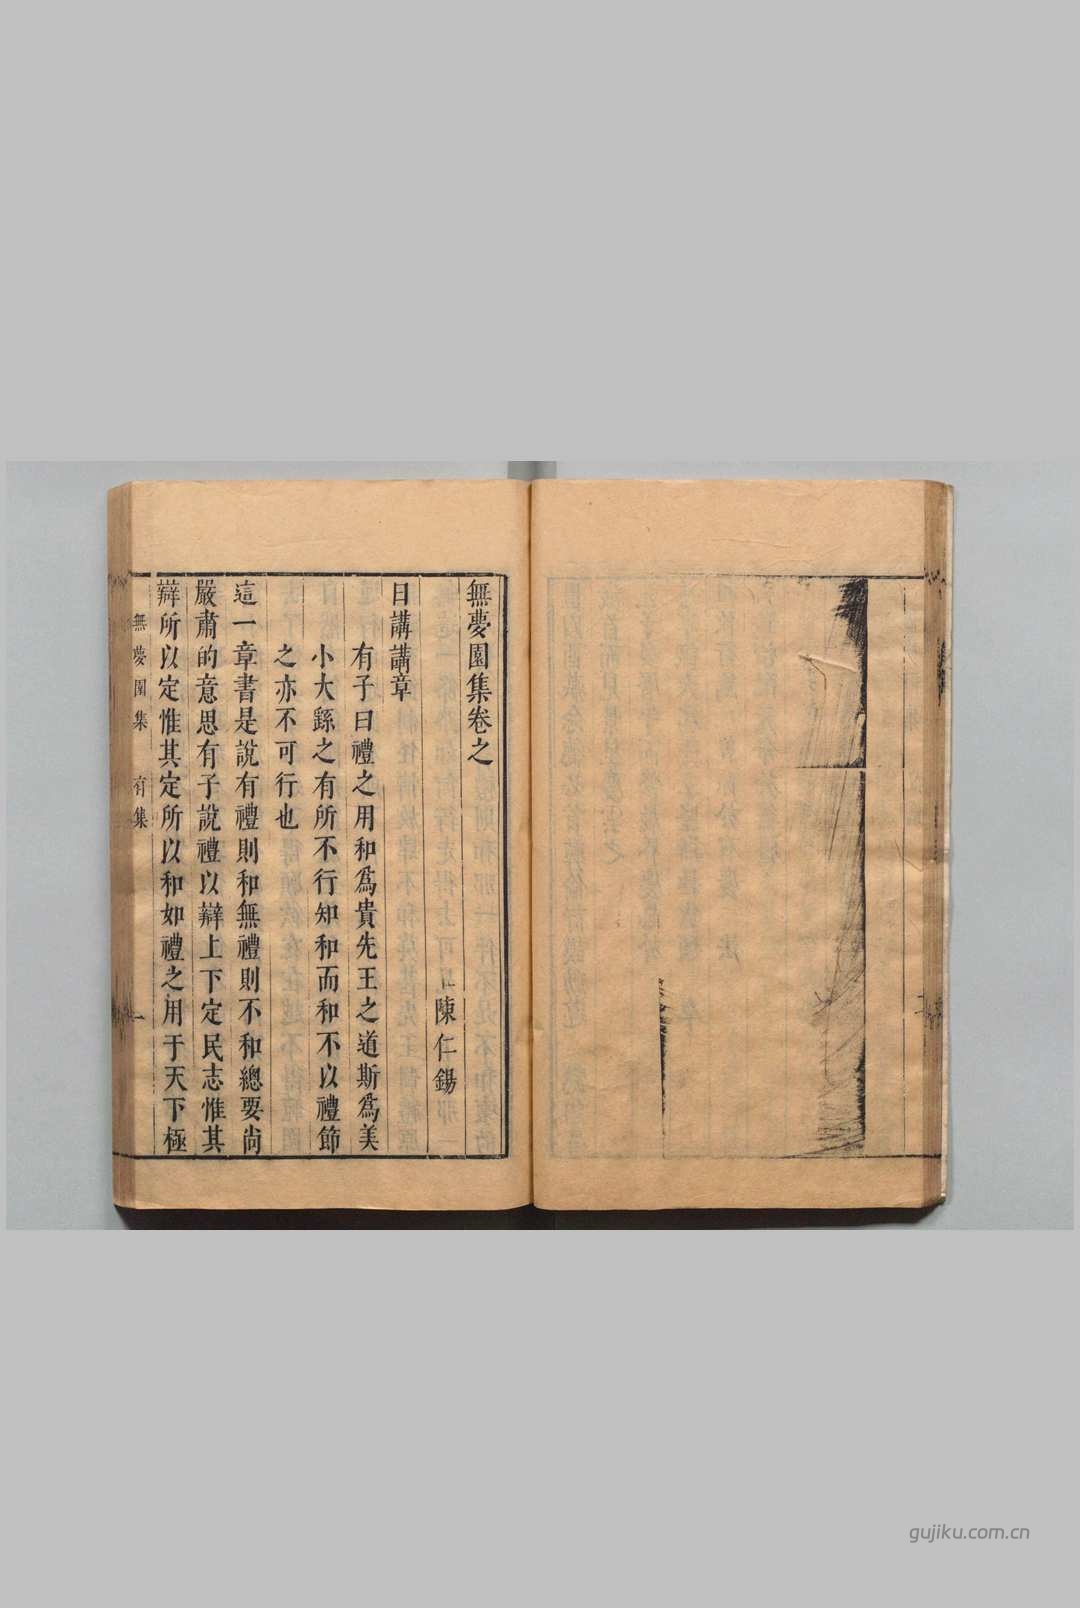 無夢園集卷之
陳仁錫
日講講章
有子曰禮之用和爲貴先王之道斯爲美
小大繇之有所不行知和而和不以禮節
之亦不可行也
這一章書是說有禮則和無禮則不和總要尚
嚴肅的意思有子說禮以辯上下定民志惟其
辯所以定惟其定所以和如禮之用于天下極
無夢園集 有集 一
gujiku.com.cn